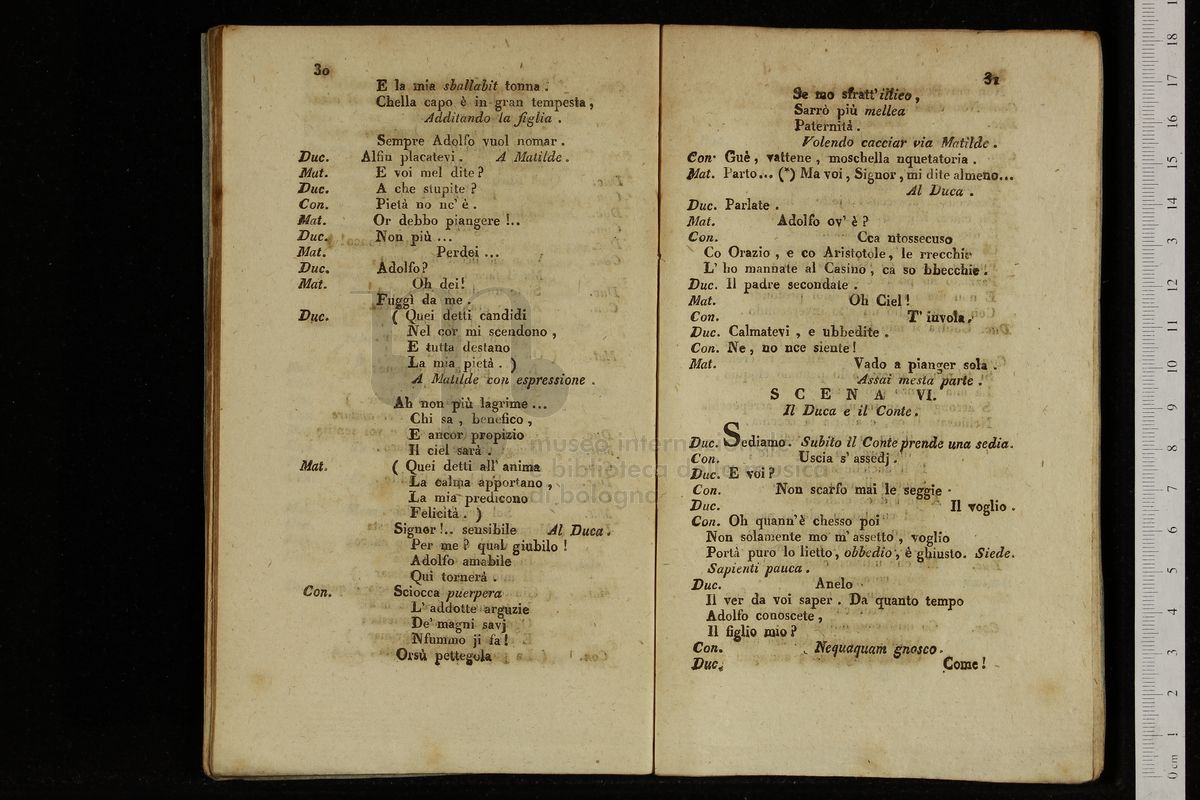 30
E la mia sballabit tonna.
Chella capo è in gran tempesta,
Additando la figlia.
Sempre Adolfo vuol nomar.
Duc. Alfin placatevi. A Matilde.
Mat. E voi mel dite?
Duc. A che stupite?
Con. Pietà no nc' è.
Mat. Or debbo piangere!..
Duc. Non più ...
Mat. Perdei ...
Duc. Adolfo?
Mat. Oh dei!
Fuggì da me.
Duc. ( Quei detti candidi
Nel cor mi scendono,
E tutta destano
La mia pietà. )
A Matilde con espressione.
Ah non più lagrime ...
Chi sa, benefico,
E ancor propizio
Il ciel sarà.
Mat. ( Quei detti all' anima
La calma apportano,
La mia predicono
Felicità. )
Signor!.. sensibile Al Duca.
Per me? qual giubilo!
Adolfo amabile
Qui tornerà.
Con. Sciocca puerpera
L' addotte arguzie
De' magni savj
Nfummo ji fa!
Orsù pettegola
31
Se mo sfratt' illico,
Sarrò più mellea
Paternità.
Volendo cacciar via Matilde.
Con. Guè, vattene, moschella nquetatoria.
Mat. Parto... (*) Ma voi, Signor, mi dite almeno...
Al Duca.
Duc. Parlate.
Mat. Adolfo ov' è?
Con. Cca ntossecuso
Co Orazio, e co Aristotole, le rrecchie
L' ho mannate al Casino, ca so bbecchie.
Duc. Il padre secondate.
Mat. Oh Ciel!
Con. T' invola.
Duc. Calmatevi, e ubbedite.
Con. Ne, no nce siente!
Mat. Vado a pianger sola.
Assai mesta parte.
SCENA VI.
Il Duca e il Conte.
Duc. Sediamo. Subito il Conte prende una sedia.
Con. Uscia s' assedj.
Duc. E voi?
Con. Non scarfo mai le seggie.
Duc. Il voglio.
Con. Oh quann'è chesso poi
Non solamente mo m' assetto, voglio
Portà puro lo lietto, obbedio, è ghiusto. Siede.
Sapienti pauca.
Duc. Anelo
Il ver da voi saper. Da quanto tempo
Adolfo conoscete,
Il figlio mio?
Con. Nequaquam gnosco.
Duc. Come!
museo internazionale
e biblioteca della musica
di bologna
0 cm 1 2 3 4 5 6 7 8 9 10 11 12 13 14 15 16 17 18